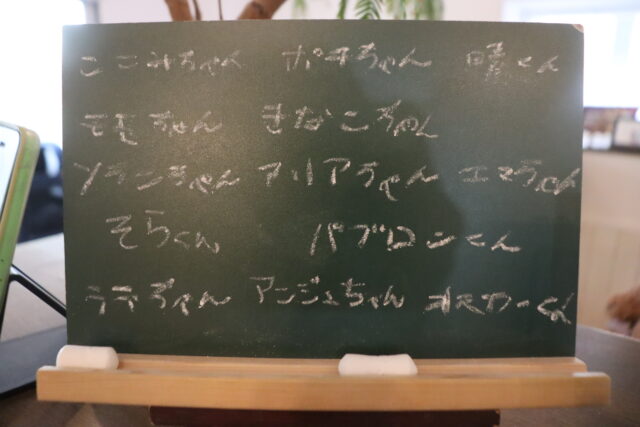 ここみちゃん ポチちゃん 晴くん
ももちゃん きなこちゃん
ソランちゃん アリアちゃん エマちゃん
そらくん パブロンくん
ララちゃん アンジュちゃん オスカーくん